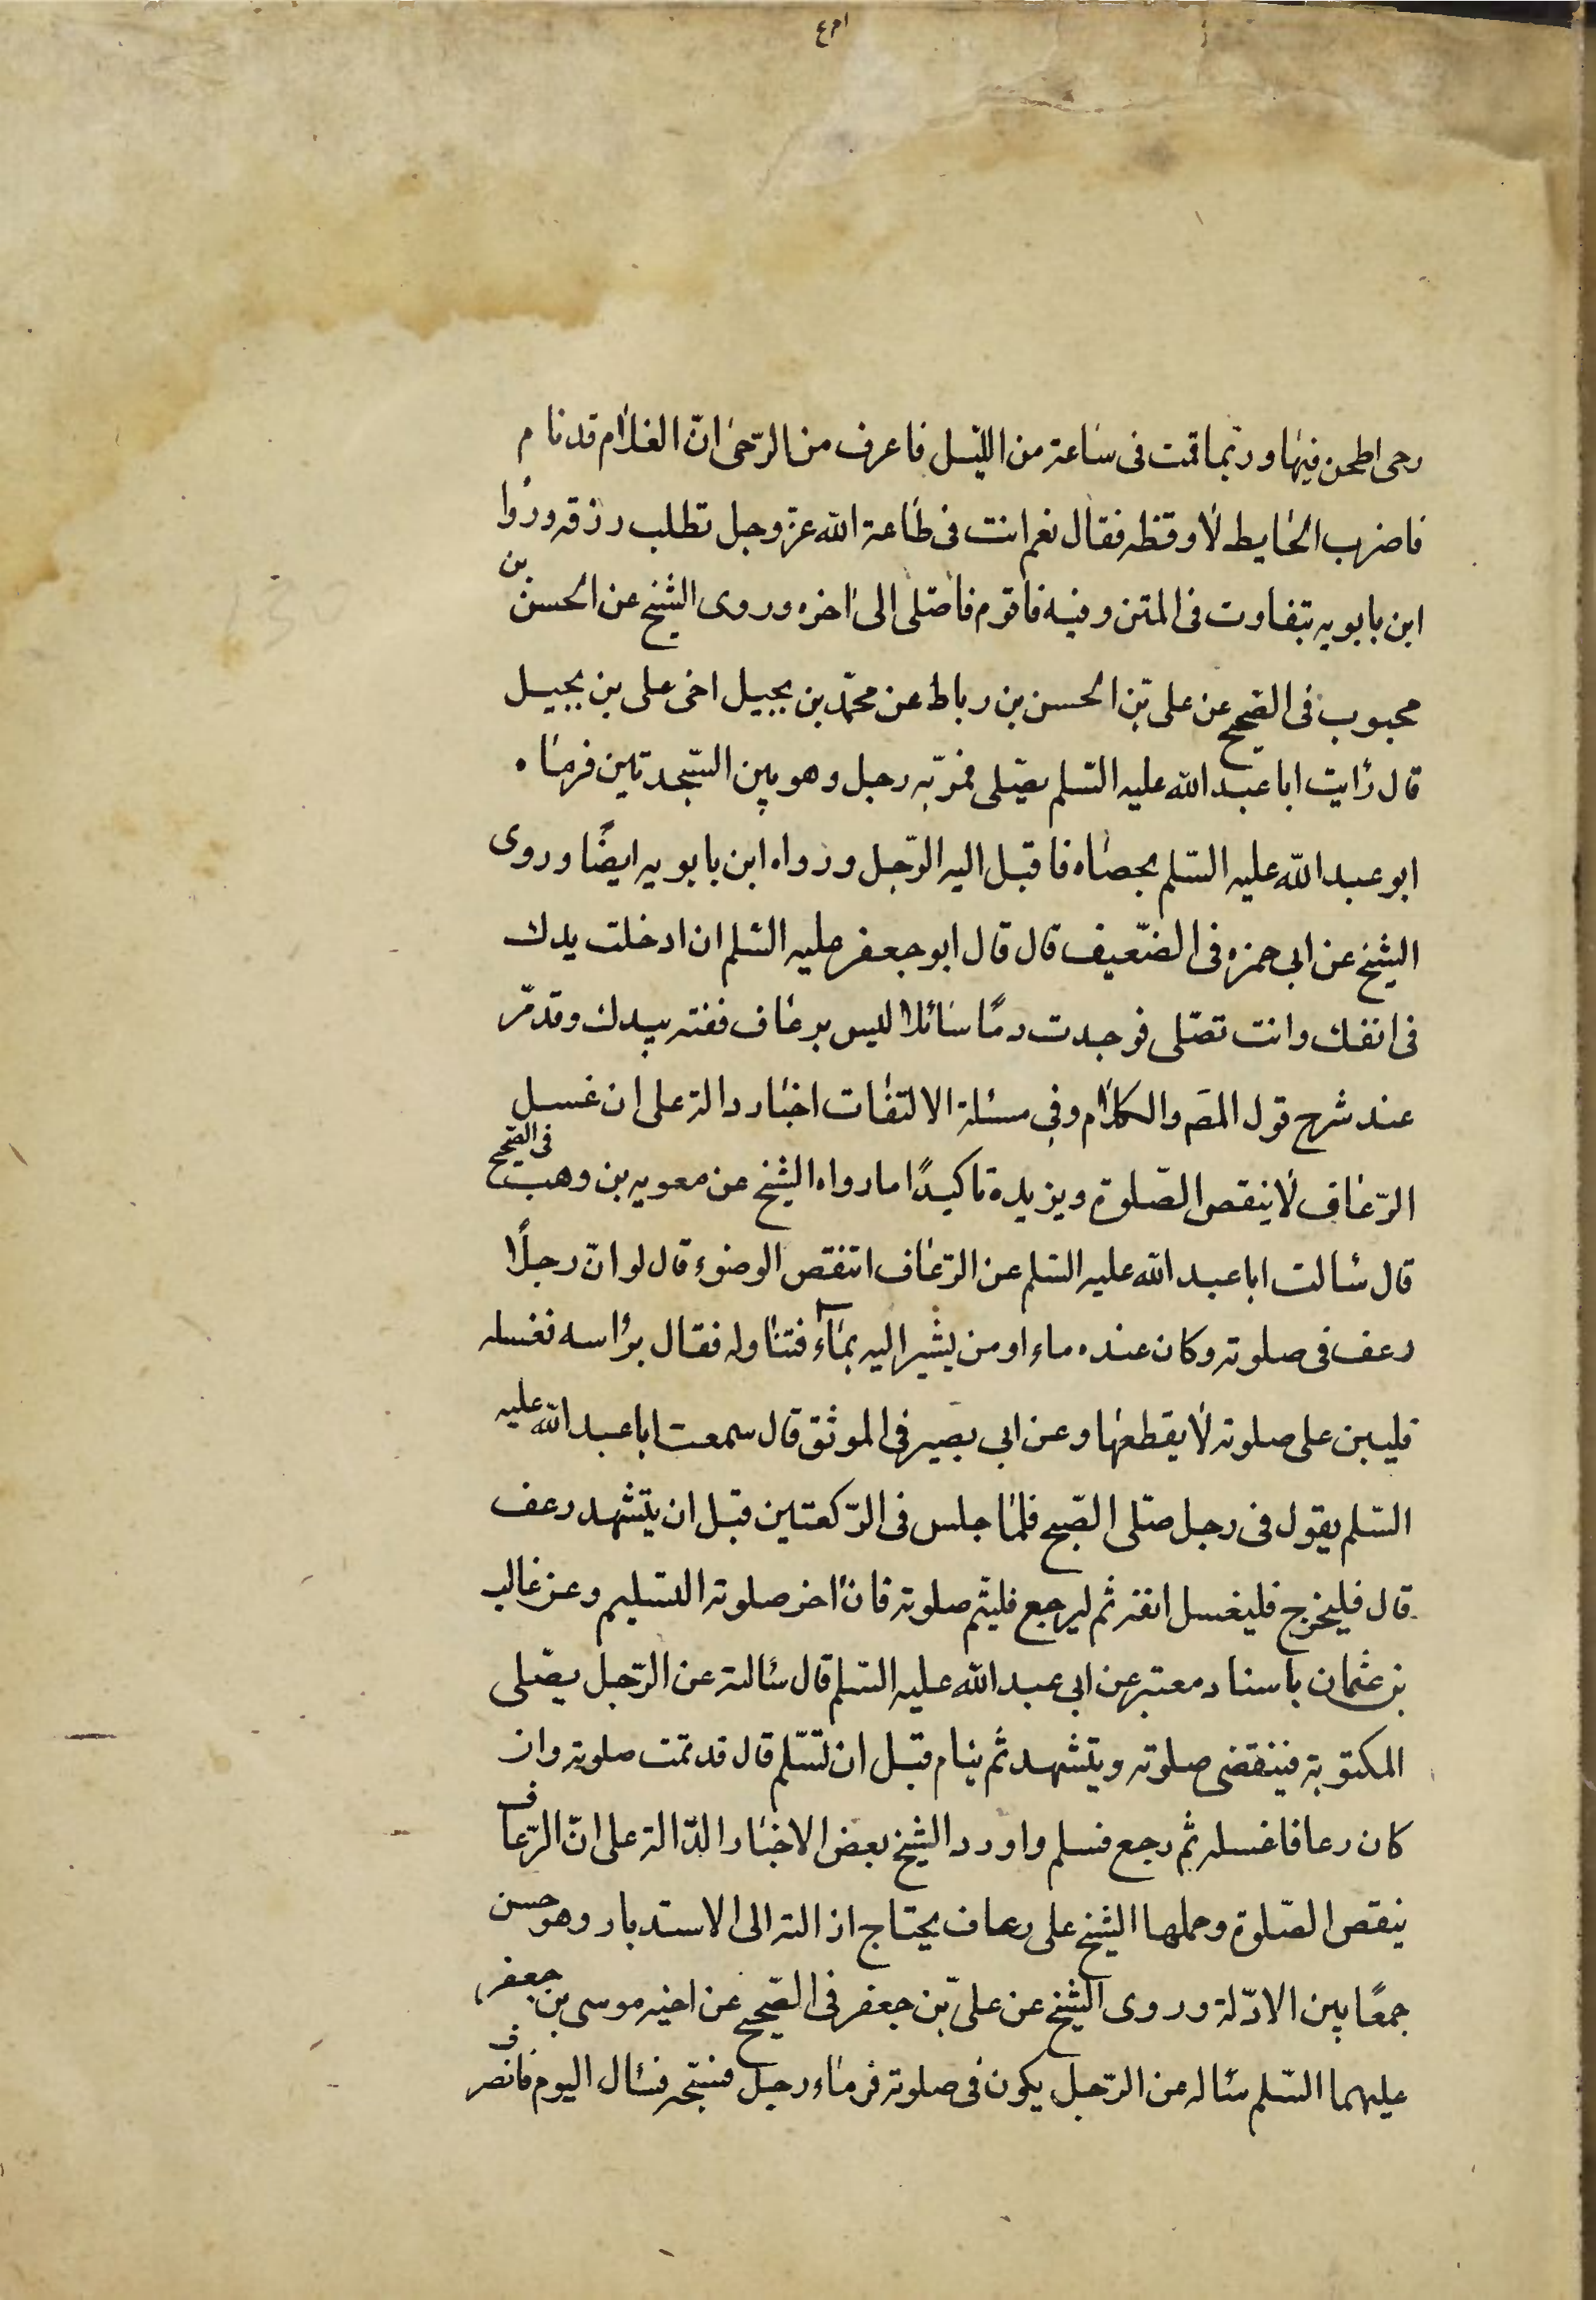 رحى اطحن فيها وربما قمت فى ساعة من الليل فاعرف من الرّحى انّ الغلام قد نام
فاضرب الحايط لاوقظه فقال نعم انت فى طاعة الله عزّ وجل تطلب رزقه ورواه
ابن بابويه بتفاوت فى المتن وفيه فاقوم فاصلى الى اخره وروى الشيخ عن الحسن بن
محبوب فى الصّحيح عن على بن الحسن بن رباط عن محمّد بن بجيل اخى على بن بجيل
قال رايت ابا عبد الله عليه السّلم يصلّى فمرّ به رجل وهو بين السّجدتين فرماه
ابو عبد الله عليه السّلم بحصاه فاقبل اليه الرّجل ورواه ابن بابويه ايضًا وروى
الشيخ عن ابى حمزه فى الضّعيف قال قال ابو جعفر عليه السّلم ان ادخلت يدك
فى انفك وانت تصلّى فوجدت دمًا سائلا ليس برعاف ففته بيدك وقد مرّ
عند شرح قول المصَ والكلام وفى مسئلة الالتفات اخبار دالة على ان غسل
الرّعاف لا ينقص الصّلوة ويزيده تاكيدًا ما رواه الشيخ عن معويه بن وهب فى الصّحيح
قال سالت ابا عبد الله عليه السّلم عن الرّعاف اتنقص الوضوء قال لو انّ رجلًا
رعف فى صلوته وكان عنده ماء او من يشير اليه بماء فتناوله فقال براسه فغسله
فليبن على صلوته لا يقطعها وعن ابى بصير فى الموثق قال سمعت ابا عبد الله عليه
السّلم يقول فى رجل صلّى الصّبح فلمّا جلس فى الرّكعتين قبل ان يتشهد رعف
قال فليخرج فليغسل انفه ثم ليرجع فليتم صلوته فان اخر صلوته التسليم وعن غالب
بن عثمان باسناد معتبر عن ابى عبد الله عليه السّلم قال سالته عن الرّجل يصلّى
المكتوبة فينقضى صلوته ويتشهد ثم ينام قبل ان تسّلم قال قد تمت صلوته وان
كان رعافا غسله ثم رجع فسلم واورد الشيخ بعض الاخبار الدّالة على انّ الرّعاف
ينقص الصّلوة وحملها الشيخ على رعاف يحتاج ازالته الى الاستدبار وهو حسن
جمعًا بين الادّلة وروى الشيخ عن علىّ بن جعفر فى الصّحيح عن اخيه موسى بن جعفر
عليهما السّلم ساله عن الرّجل يكون فى صلوته فرماه رجل فشجه فسال الدم فانصرف